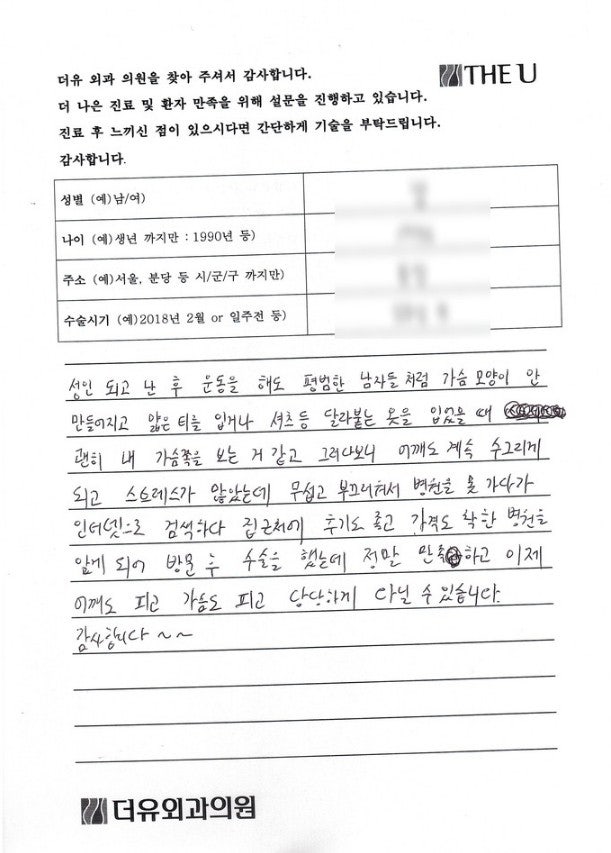 더유 외과 의원을 찾아 주셔서 감사합니다.
THE U
더 나은 진료 및 환자 만족을 위해 설문을 진행하고 있습니다.
진료 후 느끼신 점이 있으시다면 간단하게 기술을 부탁드립니다.
감사합니다.
성별 (예)남/여)
나이 (예)생년 까지만 : 1990년 등)
주소 (예)서울, 분당 등 시/군/구 까지만)
수술시기 (예)2018년 2월 or 일주전 등)
성인 되고 난 후 운동을 해도 평범한 남자들처럼 가슴모양이 안
만들어지고 얇은 티를 입거나 셔츠등 달라붙는 옷을 입었을 때
괜히 내 가슴쪽을 보는 거 같고 그러다보니 어깨도 계속 수그리게
되고 스트레스가 많았는데 무섭고 부끄러워서 병원을 못 가다가
인터넷으로 검색하다 집근처에 후기도 좋고 가격도 착한 병원을
알게 되어 방문 후 수술을 했는데 정말 만족하고 이제
어깨도 피고 가슴도 피고 당당하게 다닐 수 있습니다.
감사합니다~~
더유외과의원